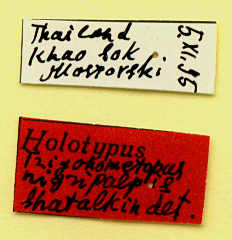 Thailand
Khao Sok
Mostovski
5.XI.95
Holotypus
Trixonometopus
nigripalpis
Shatalkin det.